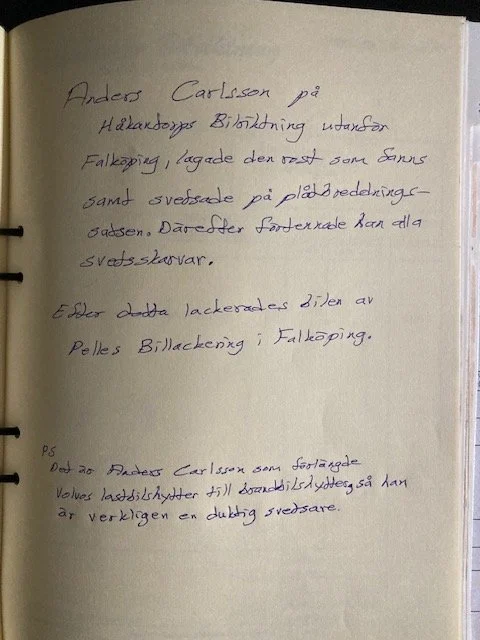 Anders Carlsson på
Håkantorps Bilriktning utanför
Falköping, lagade den rost som fanns
samt svetsade på plåtbreddnings-
satsen. Därefter förtennade han alla
svetsskarvar.
Efter detta lackerades bilen av
Pelles Billackering i Falköping.
PS
Det är Anders Carlsson som förlängde
Volvos lastbilshytter till brandbilshytter, så han
är verkligen en duktig svetsare.